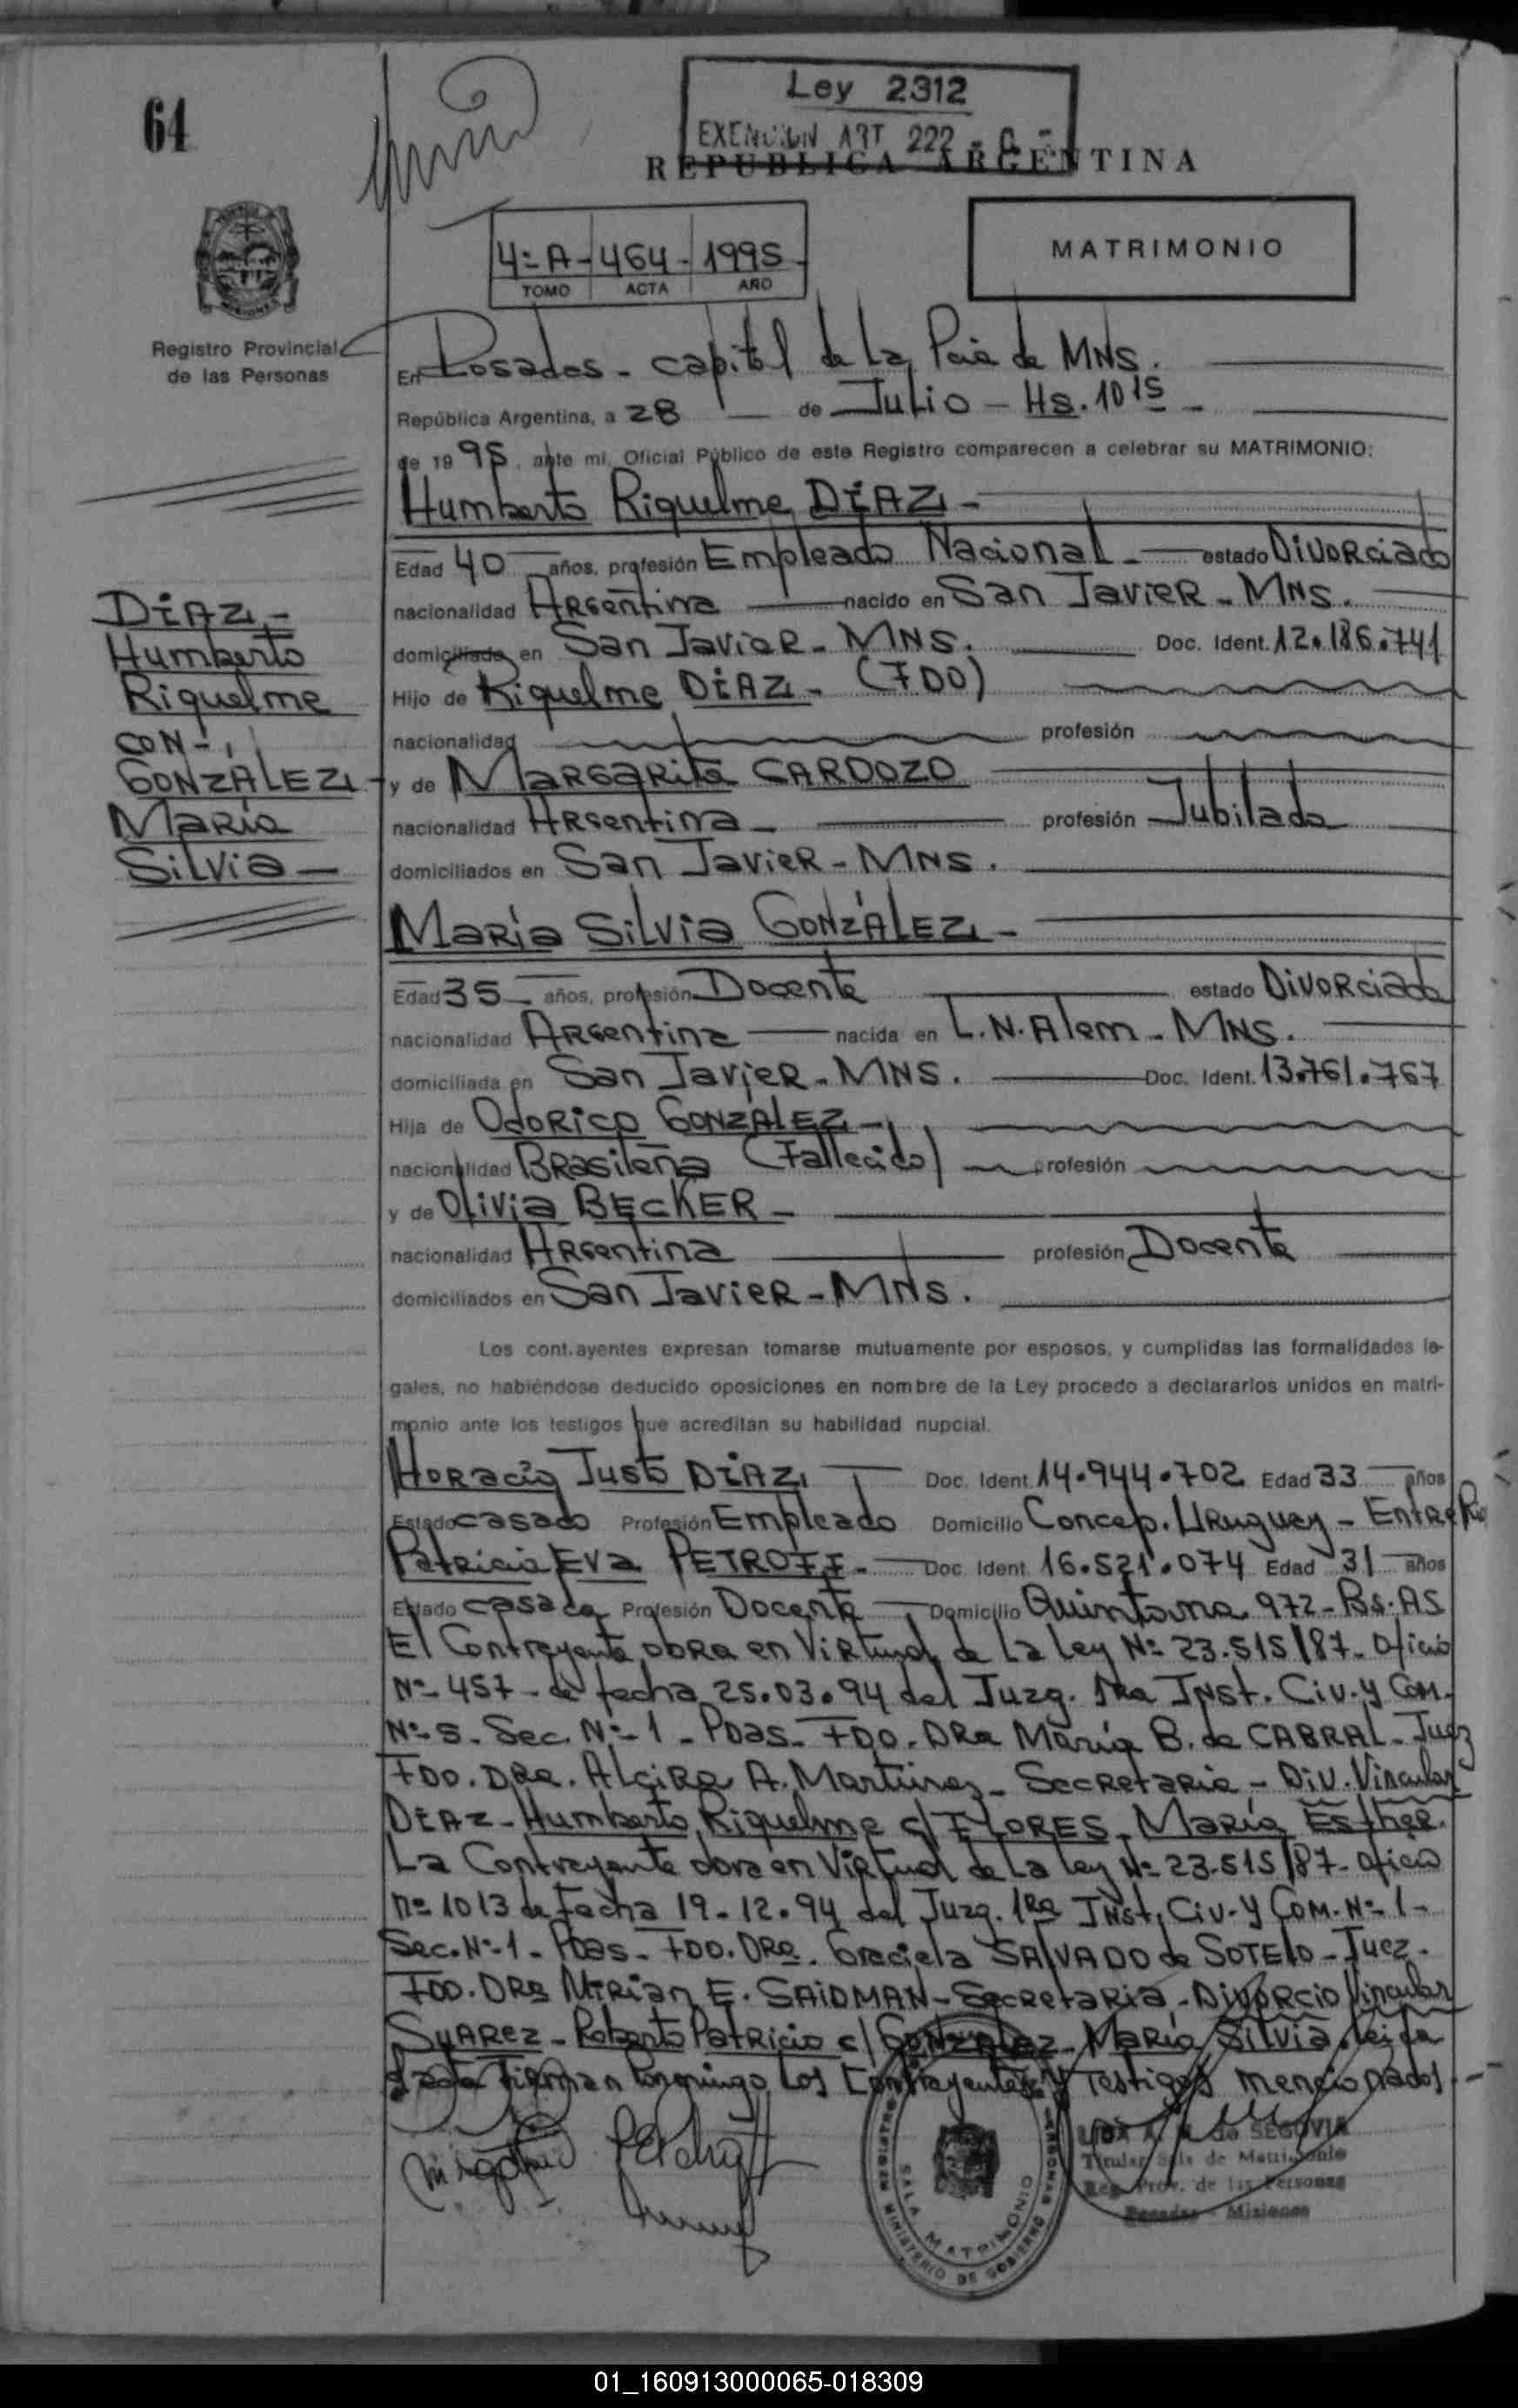 64
Ley 2312
EXENCION ART 222
REPUBLICA ARGENTINA
4º A - 464 - 1995
TOMO ACTA AÑO
MATRIMONIO
Registro Provincial
de las Personas
En Posadas - capital de La Pcia de MNS.
República Argentina, a 28 de Julio - Hs. 10 15 -
de 1995, ante mí, Oficial Público de este Registro comparecen a celebrar su MATRIMONIO:
Humberto Riquelme DÍAZ -
Edad 40 años, profesión Empleado Nacional - estado Divorciado
nacionalidad Argentina nacido en San Javier - MNS.
domiciliado en San Javier - MNS. Doc. Ident. 12.186.741
Hijo de Riquelme DÍAZ - (FDO)
nacionalidad profesión
y de Margarita CARDOZO
nacionalidad Argentina - profesión Jubilada
domiciliados en San Javier - MNS.
DÍAZ -
Humberto
Riquelme
CON -
GONZÁLEZ -
María
Silvia -
María Silvia GONZÁLEZ -
Edad 35 - años, profesión Docente estado Divorciada
nacionalidad Argentina nacida en L.N. Alem - MNS.
domiciliada en San Javier - MNS. Doc. Ident. 13.761.767
Hija de Odorico GONZÁLEZ -
nacionalidad Brasileña (Fallecido) profesión
y de Olivia BECKER -
nacionalidad Argentina profesión Docente
domiciliados en San Javier - MNS.
Los contrayentes expresan tomarse mutuamente por esposos, y cumplidas las formalidades le-
gales, no habiéndose deducido oposiciones en nombre de la Ley procedo a declararlos unidos en matri-
monio ante los testigos que acreditan su habilidad nupcial.
Horacio Justo DÍAZ Doc. Ident. 14.944.702 Edad 33 años
Estado casado Profesión Empleado Domicilio Concep. Uruguay - Entre Rio
Patricia Eva PETROFF - Doc. Ident. 16.521.074 Edad 31 años
Estado casada Profesión Docente Domicilio Quintana 972 - Bs. AS
El Contrayente obra en Virtud de La Ley Nº 23.515/87 - Oficio
Nº 457 - de fecha 25.03.94 del Juzg. 1ra Inst. Civ. y Com.
Nº 5 - Sec. Nº 1 - Pdas - FDO. DRa María B. de CABRAL - Juez
FDO. DRa. Alcira A. Martinez - Secretaria - Div. Vincular
DÍAZ - Humberto Riquelme c/ FLORES, María Esther.
La Contrayente obra en Virtud de La Ley Nº 23.515/87 - Oficio
nº 1013 de Fecha 19-12.94 del Juzg. 1Ra Inst. Civ. y Com. Nº 1 -
Sec. Nº 1 - Pdas - FDO. DRa. Graciela SALVADO de SOTELO - Juez.
FDO. DRa Mirian E. SAIDMAN - Secretaria - Divorcio Vincular
SUAREZ - Roberto Patricio c/ GONZALEZ - María Silvia. Leída
Firman Conmigo Los Contrayentes y Testigos mencionados. -
REGISTRO PERSONAS
SALA MATRIMONIO
MINISTERIO DE GOBIERNO
de SEGOVIA
Titular Sala de Matrimonio
Reg. Prov. de las Personas
Posadas - Misiones
01_160913000065-018309